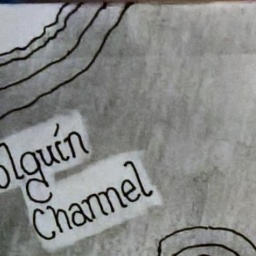 olguín
Channel